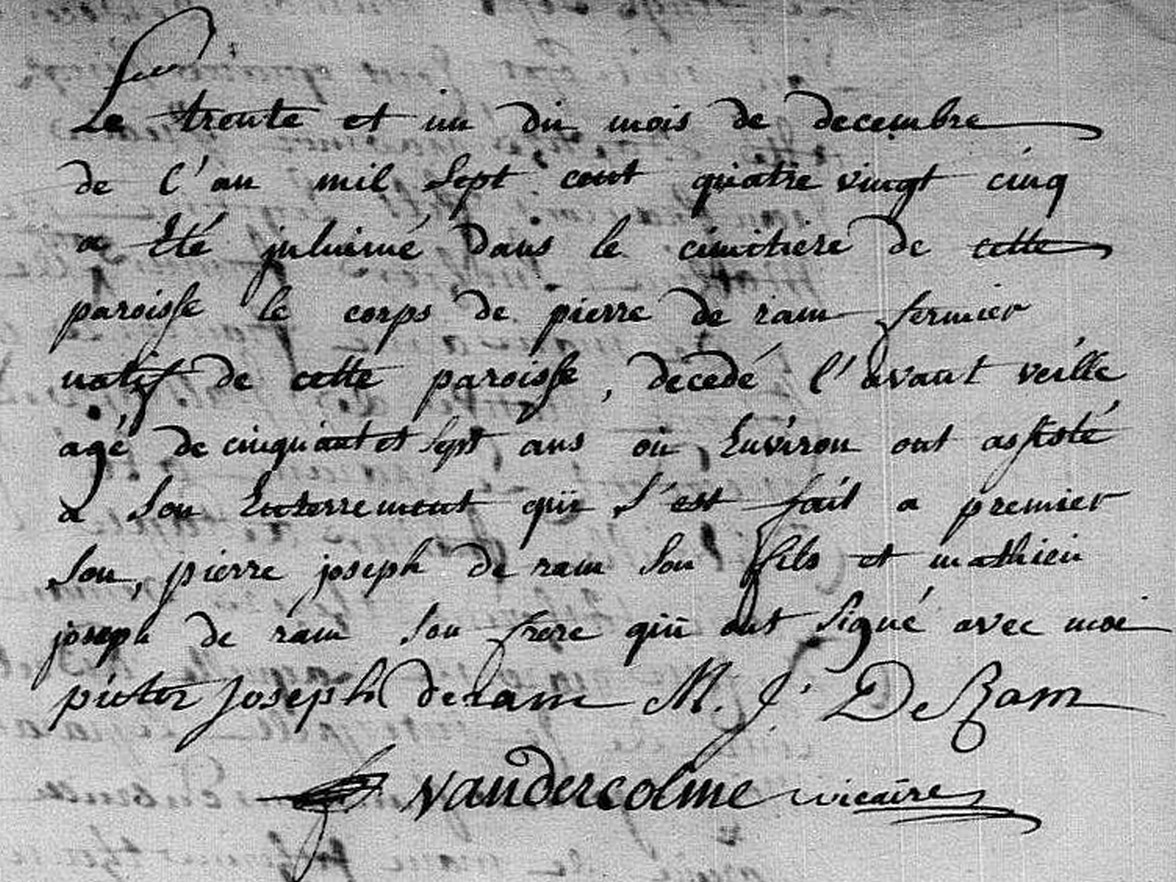 Le trente et un du mois de decembre
de l'an mil sept cent quatre vingt cinq
a Eté juhumé dans le cimitiere de cette
paroisse le corps de pierre de ram fermier
natif de cette paroisse, decedé l'avant veille
agé de cinquant et sept ans ou Environ ont assisté
a son Enterrement qui s'est fait a premier
son, pierre joseph de ram son fils et mathieu
joseph de ram son frere qui ont signé avec moi
pieter Joseph deram M. J. De Ram
vandercolme vicaire